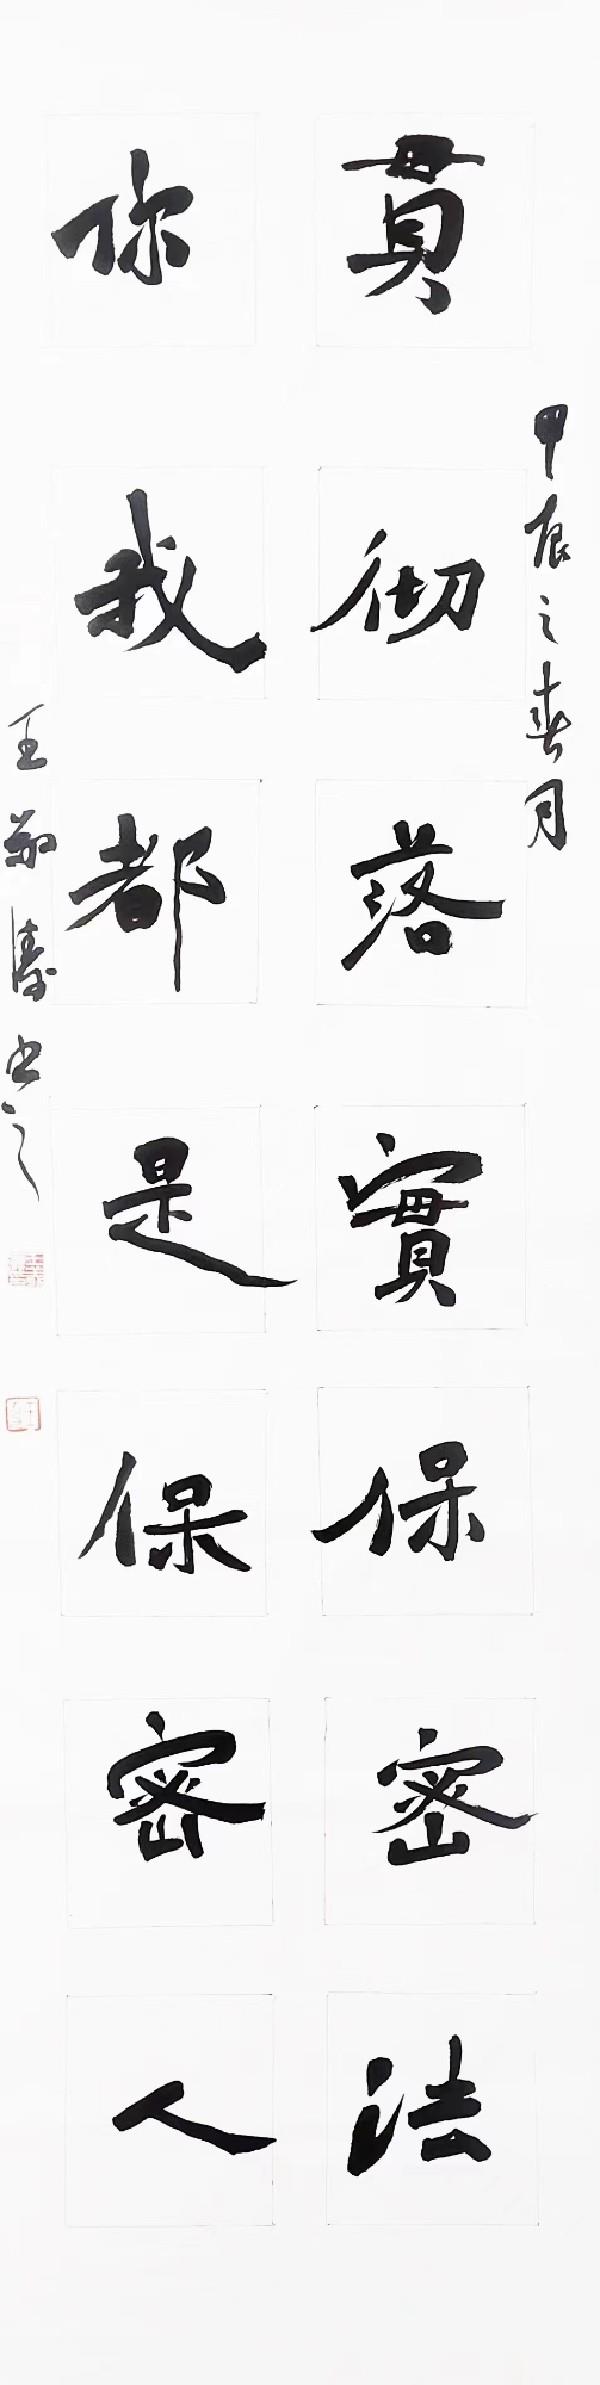 甲辰之春月
貫彻落實保密法
你我都是保密人
王敬濤书之